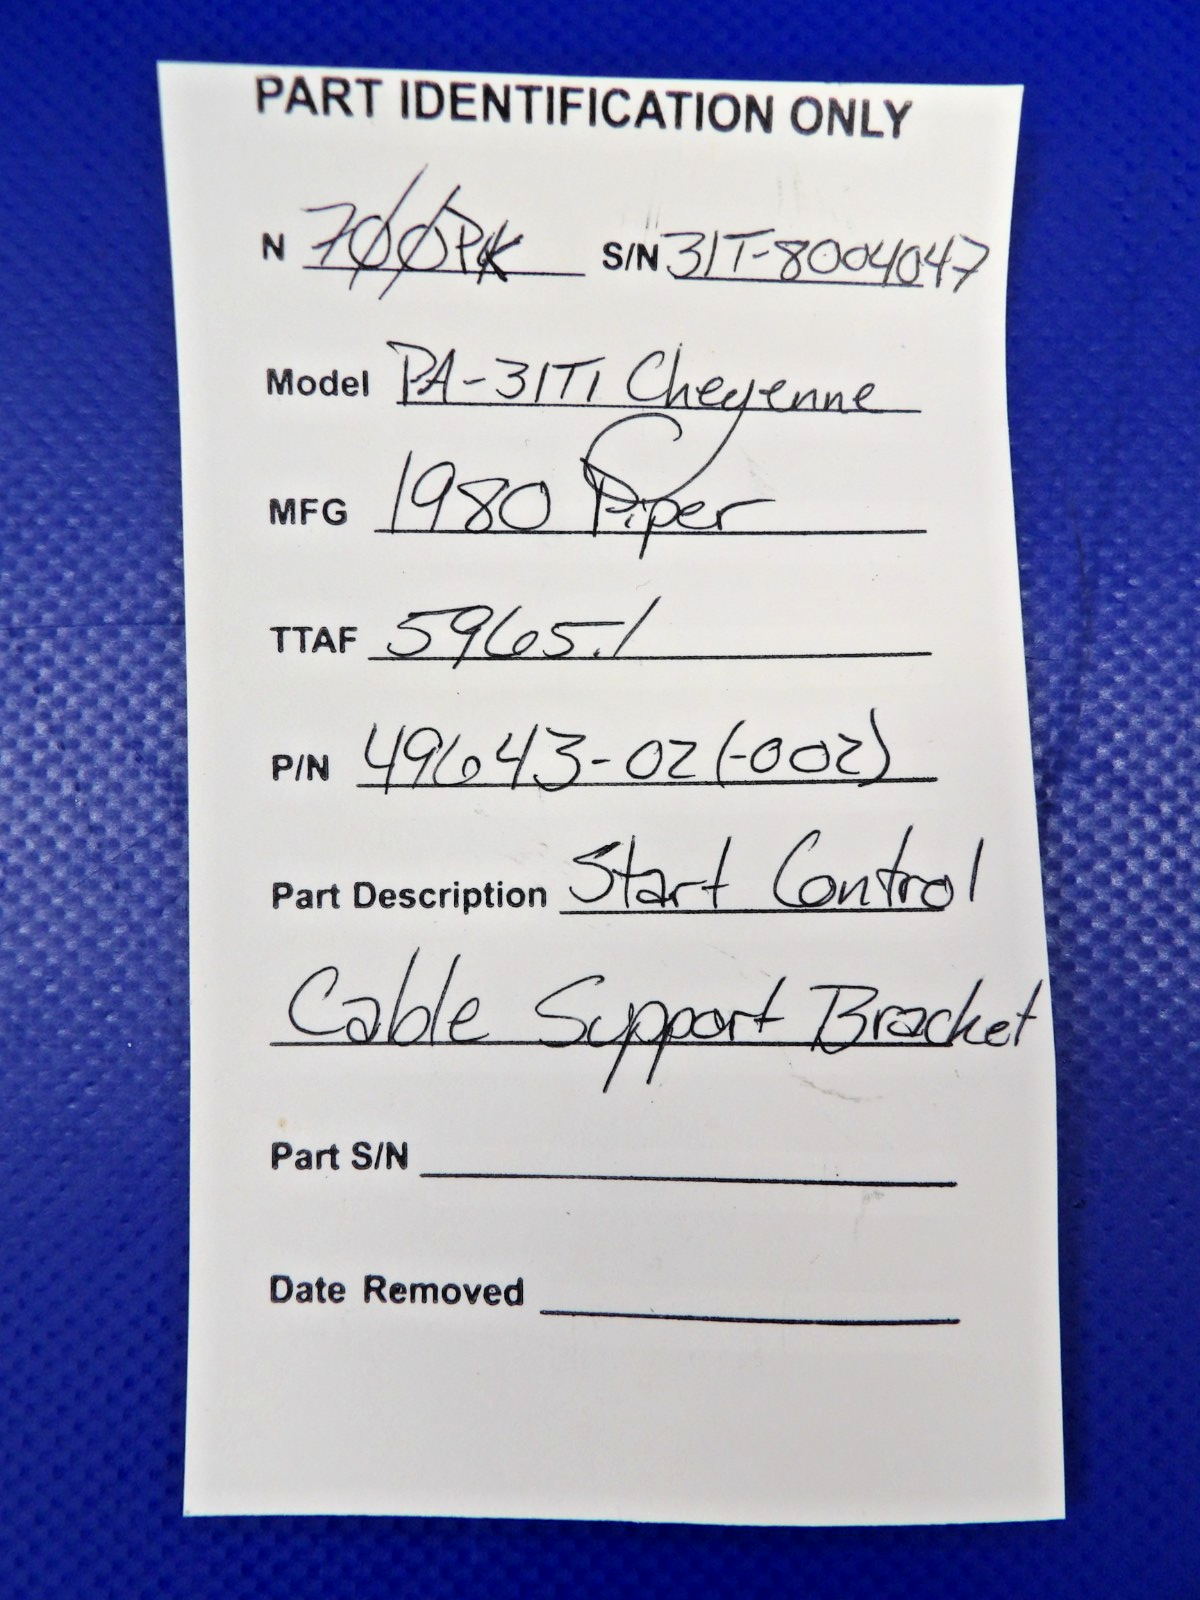 PART IDENTIFICATION ONLY
N 700PK S/N 31T-8004047
Model PA-31T1 Cheyenne
MFG 1980 Piper
TTAF 5965.1
P/N 49643-02 (-002)
Part Description Start Control
Cable Support Bracket
Part S/N
Date Removed